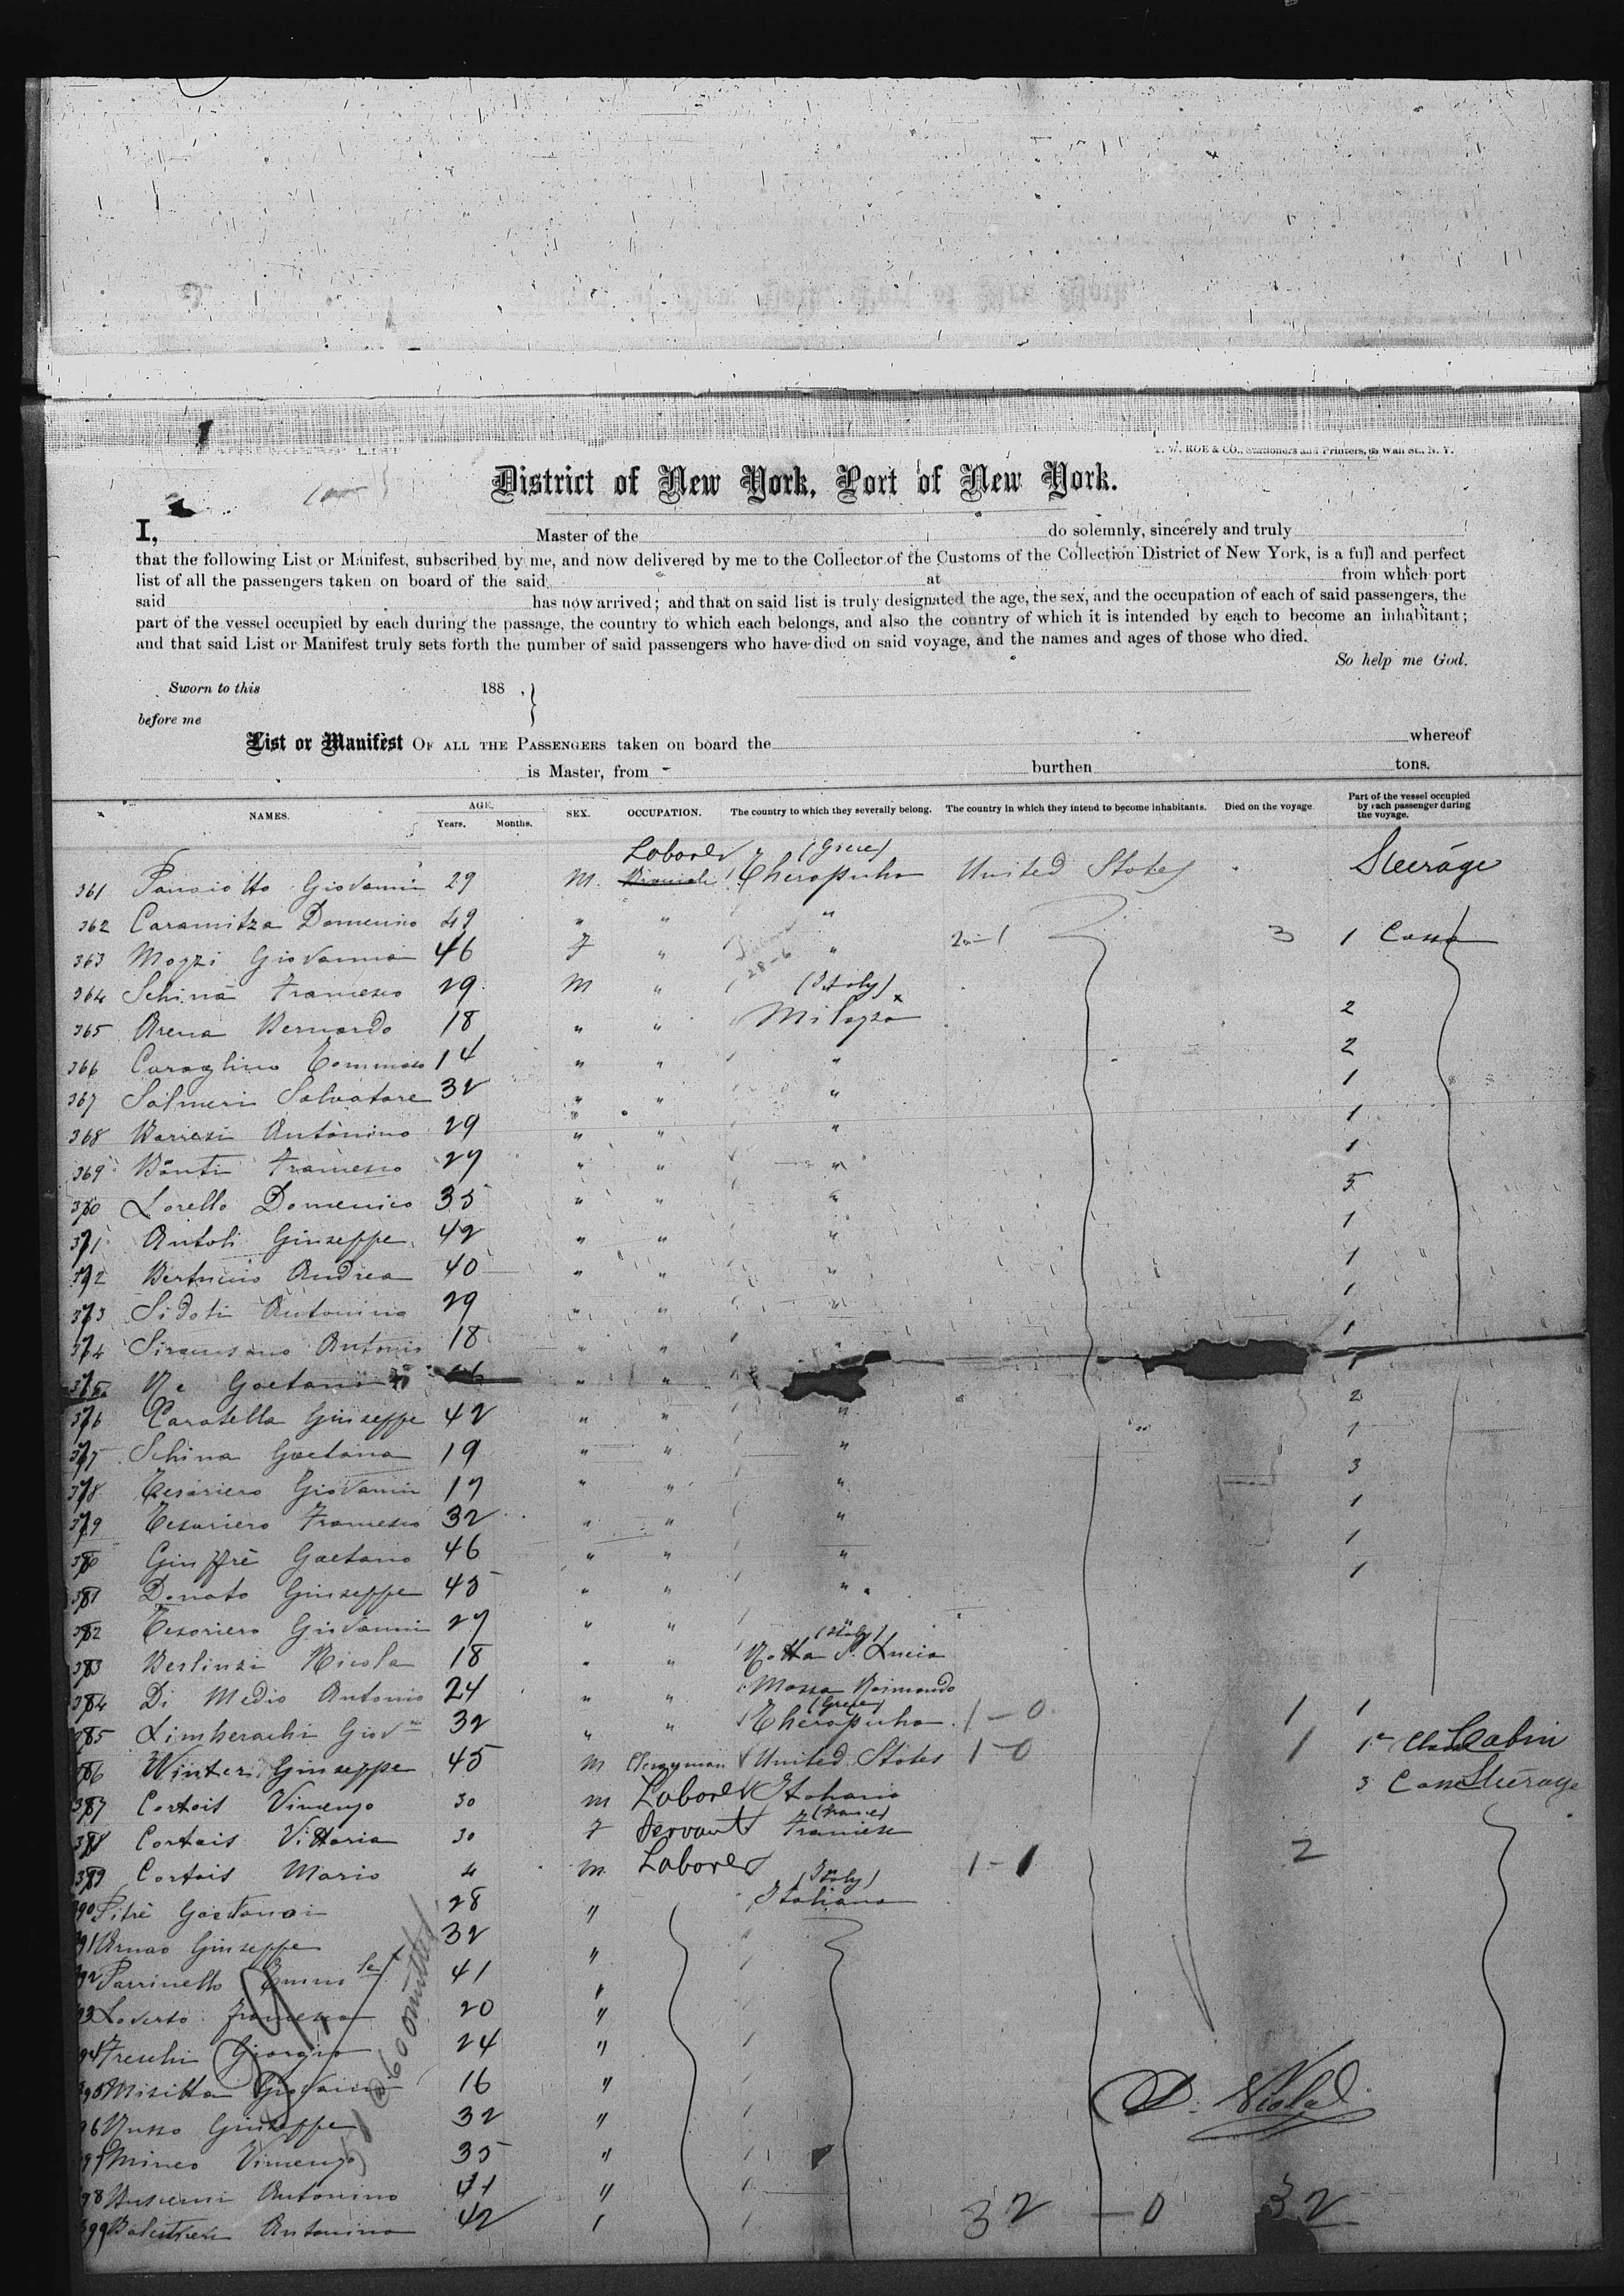 T. W. ROE & CO., Stationers and Printers, 69 Wall St., N. Y.
District of New York, Port of New York.
I, Master of the do solemnly, sincerely and truly
that the following List or Manifest, subscribed by me, and now delivered by me to the Collector of the Customs of the Collection District of New York, is a full and perfect
list of all the passengers taken on board of the said at from which port
said has now arrived; and that on said list is truly designated the age, the sex, and the occupation of each of said passengers, the
part of the vessel occupied by each during the passage, the country to which each belongs, and also the country of which it is intended by each to become an inhabitant;
and that said List or Manifest truly sets forth the number of said passengers who have died on said voyage, and the names and ages of those who died.
So help me God.
Sworn to this 188 , }
before me
List or Manifest OF ALL THE PASSENGERS taken on board the whereof
is Master, from burthen tons.
NAMES. AGE. Years. Months. SEX. OCCUPATION. The country to which they severally belong. The country in which they intend to become inhabitants. Died on the voyage. Part of the vessel occupied by each passenger during the voyage.
Laborer (Grece)
361 Panaiotto Giovanni 29 M. Cherapuha United States Steerage
362 Caramitza Domenico 49 " " "
363 Mozzi Giovanna 46 F " " 2-1 3 1 Cassa
364 Schinà Francesco 29 M " (Italy)
365 Arena Bernardo 18 " " Milazzo 2
366 Caraglino Tommaso 14 " " " 2
367 Salmeri Salvatore 32 " " " 1
368 Barresi Antonino 29 " " " 1
369 Bonti Francesco 27 " " " 1
370 Lorello Domenico 35 " " " 5
371 Antoli Giuseppe 42 " " " 1
372 Bertuccio Andrea 40 " " " 1
373 Sidoti Antonino 29 " " " 1
374 Siracusano Antonio 18 " " " 1
375 Re Gaetano " " 1
376 Caratella Giuseppe 42 " " " 2
377 Schina Gaetana 19 " " " 1
378 Tesoriero Giovanni 17 " " " 3
379 Tesoriero Francesco 32 " " " 1
380 Giuffrè Gaetano 46 " " " 1
381 Donato Giuseppe 45 " " " 1
382 Tesoriero Giovanni 27 " " (Italy)
383 Berlinzi Nicola 18 " " Motta S. Lucia
384 Di Medio Antonio 24 " " Massa Raimondo
(Grece)
385 Limberachi Giov. 32 " " Cherapuha 1-0 1 1
386 Winter Giuseppe 45 M Clergyman United States 1-0 1 1a Class Cabin
387 Cortois Vincenzo 30 M Laborer Italiano 3 Cassa Steerage
(France)
388 Cortois Vittoria 30 F Servant Francese
389 Cortois Mario 4 M Laborer 1-1 2
(Italy)
390 Pitrè Gaetano 28 " Italiana
391 Arnao Giuseppe 32 "
392 Parrinello 41 "
393 Loverso Francesco 20 "
394 Freschi Giorgio 24 "
395 Misitta Giovanni 16 "
396 Russo Giuseppe 32 "
397 Mineo Vincenzo 35 "
D. Viola
398 Buscemi Antonino 41 "
399 Balistreri Antonino 42 " 32 - 0 32
@ 60 omitted